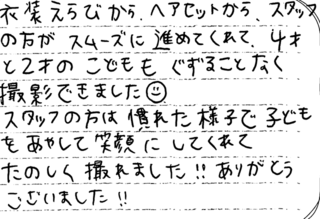 衣装えらびから、ヘアセットから、スタッフ
の方がスムーズに進めてくれて、4才
と2才のこどももぐずることなく
撮影できました☺
スタッフの方は慣れた様子で子ども
をあやして笑顔にしてくれて
たのしく撮れました!!ありがとう
ございました!!